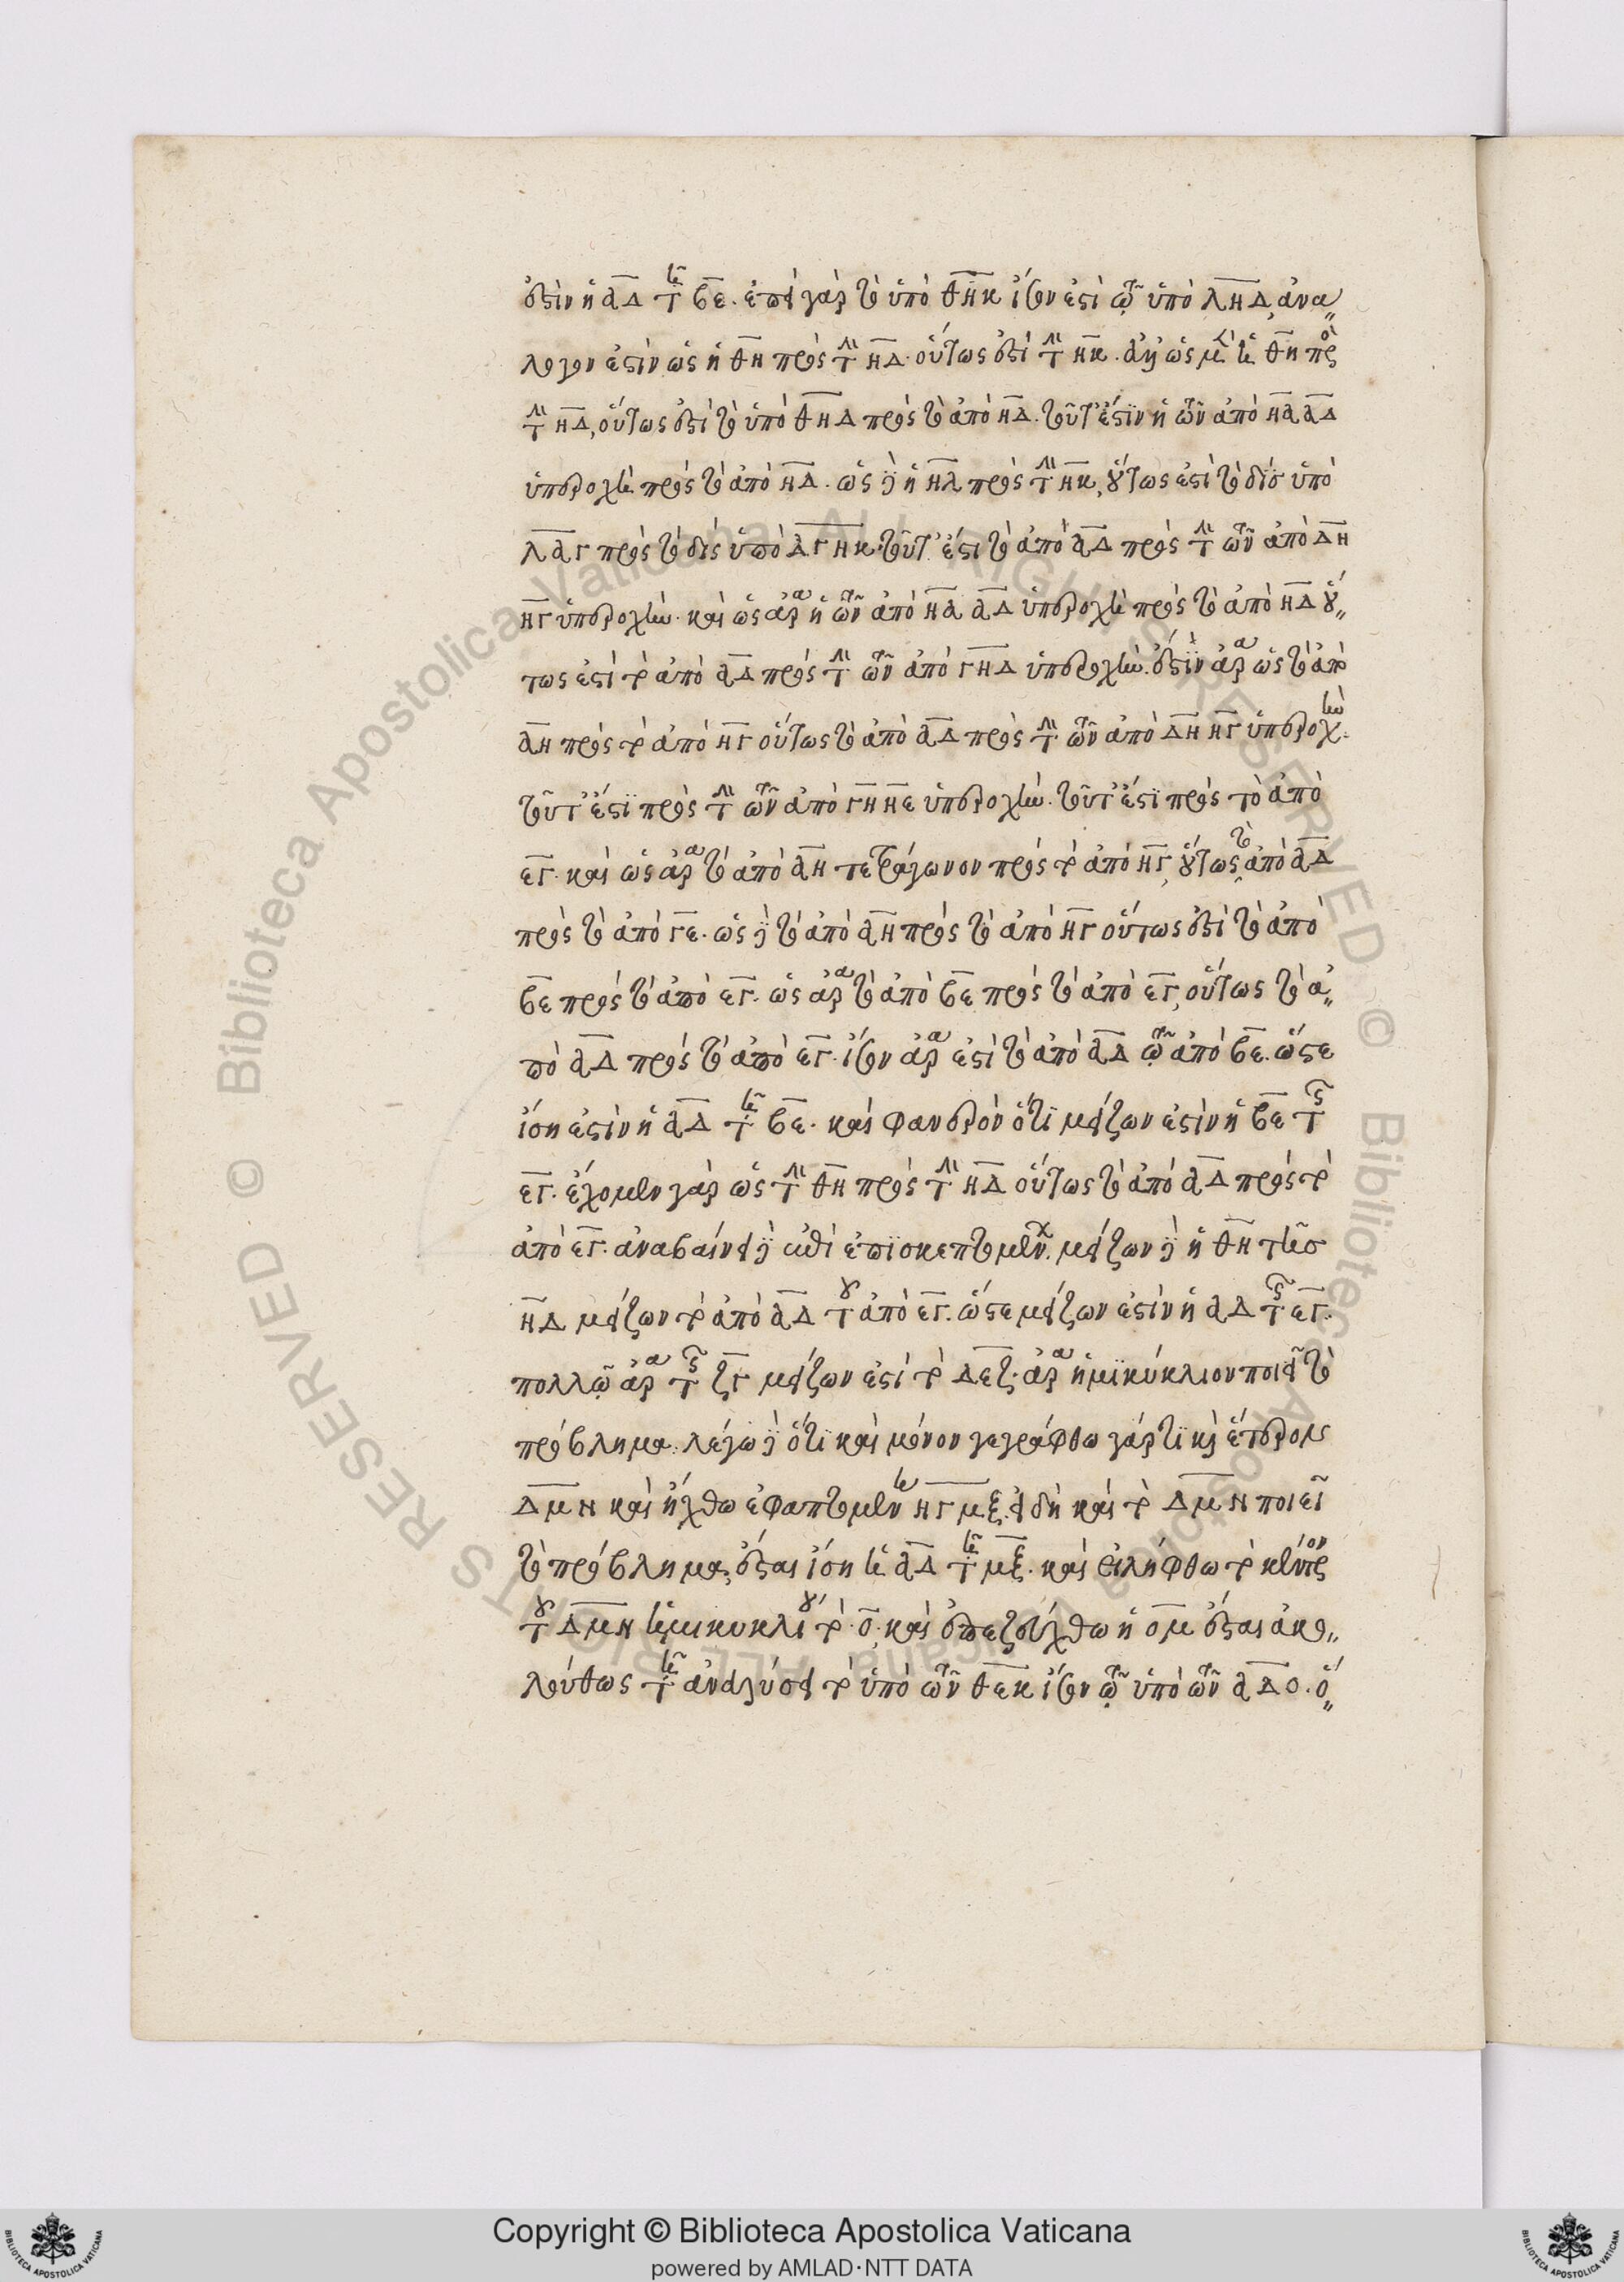 ἐστὶν ἡ ΑΔ τῇ ΒΕ. ἐπεὶ γὰρ τὸ ὑπὸ ΘΗΚ ἴσον ἐστὶ τῷ ὑπὸ ΛΗΔ, ἀνα
λογον ἐστὶν ὡς ἡ ΘΗ πρὸς τὴν ΗΔ. οὕτως ἐστὶ τὴν ΗΚ. ἀλλ' ὡς μὲν ἡ ΘΗ πρὸς
τὴν ΗΔ, οὕτως ἐστὶ τὸ ὑπὸ ΘΗΔ πρὸς τὸ ἀπὸ ΗΔ. τοῦτ' ἔστιν ἡ τῶν ἀπὸ ΗΑ ΑΔ
ὑπεροχὴ πρὸς τὸ ἀπὸ ΗΔ. ὡς δὲ ἡ ΗΛ πρὸς τὴν ΗΚ, οὕτως ἐστὶ τὸ δὶς ὑπὸ
ΛΔΓ πρὸς τὸ δὶς ὑπὸ ΔΓΗΚ. τοῦτ' ἔστι τὸ ἀπὸ ΑΔ πρὸς τὴν τῶν ἀπὸ ΔΗ
ΗΓ ὑπεροχήν. καὶ ὡς ἄρα ἡ τῶν ἀπὸ ΗΑ ΑΔ ὑπεροχὴ πρὸς τὸ ἀπὸ ΗΔ οὕ
τως ἐστὶ τὸ ἀπὸ ΑΔ πρὸς τὴν τῶν ἀπὸ ΓΗΔ ὑπεροχήν. ἔστιν ἄρα ὡς τὸ ἀπὸ
ΑΗ πρὸς τὸ ἀπὸ ΗΓ οὕτως τὸ ἀπὸ ΑΔ πρὸς τὴν τῶν ἀπὸ ΔΗ ΗΓ ὑπεροχὴν.
τοῦτ' ἔστι πρὸς τὴν τῶν ἀπὸ ΓΗ ΗΕ ὑπεροχήν. τοῦτ' ἔστι πρὸς τὸ ἀπὸ
ΕΓ. καὶ ὡς ἄρα τὸ ἀπὸ ΑΗ τετράγωνον πρὸς τὸ ἀπὸ ΗΓ, οὕτως τὸ ἀπὸ ΑΔ
πρὸς τὸ ἀπὸ ΓΕ. ὡς δὲ τὸ ἀπὸ ΑΗ πρὸς τὸ ἀπὸ ΗΓ οὕτως ἐστὶ τὸ ἀπὸ
ΒΕ πρὸς τὸ ἀπὸ ΕΓ. ὡς ἄρα τὸ ἀπὸ ΒΕ πρὸς τὸ ἀπὸ ΕΓ, οὕτως τὸ ἀ
πὸ ΑΔ πρὸς τὸ ἀπὸ ΕΓ. ἴσον ἄρα ἐστὶ τὸ ἀπὸ ΑΔ τῷ ἀπὸ ΒΕ. ὥστε
ἴση ἐστὶν ἡ ΑΔ τῇ ΒΕ. καὶ φανερὸν ὅτι μείζων ἐστὶν ἡ ΒΕ τῆς
ΕΓ. ἔχομεν γὰρ ὡς τὴν ΘΗ πρὸς τὴν ΗΔ οὕτως τὸ ἀπὸ ΑΔ πρὸς τὸ
ἀπὸ ΕΓ. ἀναβαίνει δὲ ἐπισκεπτομένῳ. μείζων δὲ ἡ ΘΗ τῆς
ΗΔ μείζων τὸ ἀπὸ ΑΔ τοῦ ἀπὸ ΕΓ. ὥστε μείζων ἐστὶν ἡ ΑΔ τῆς ΕΓ.
πολλῷ ἄρα τῆς ΖΓ μείζων ἐστὶ τὸ ΔΕΖ. ἄρα ἡμικύκλιον ποιεῖ τὸ
πρόβλημα. λέγω δὲ ὅτι καὶ μόνον γεγράφθω γάρ τι καὶ ἕτερον
ΔΜΝ καὶ ἤχθω ἐφαπτομένη ΗΓ ΜΞ. εἰ δὴ καὶ τὸ ΔΜΝ ποιεῖ
τὸ πρόβλημα, ἔσται ἴση ἡ ΑΔ τῇ ΜΞ. καὶ εἰλήφθω τὸ κέντρον
τοῦ ΔΜΝ ἡμικυκλίου τὸ Ο, καὶ ἐπεζεύχθω ἡ ΟΜ ἔσται ἀκο
λούθως τῇ ἀναλύσει τὸ ὑπὸ τῶν ΘΕΚ ἴσον τῷ ὑπὸ τῶν ΑΔΟ. ὅ
Copyright © Biblioteca Apostolica Vaticana
powered by AMLAD·NTT DATA